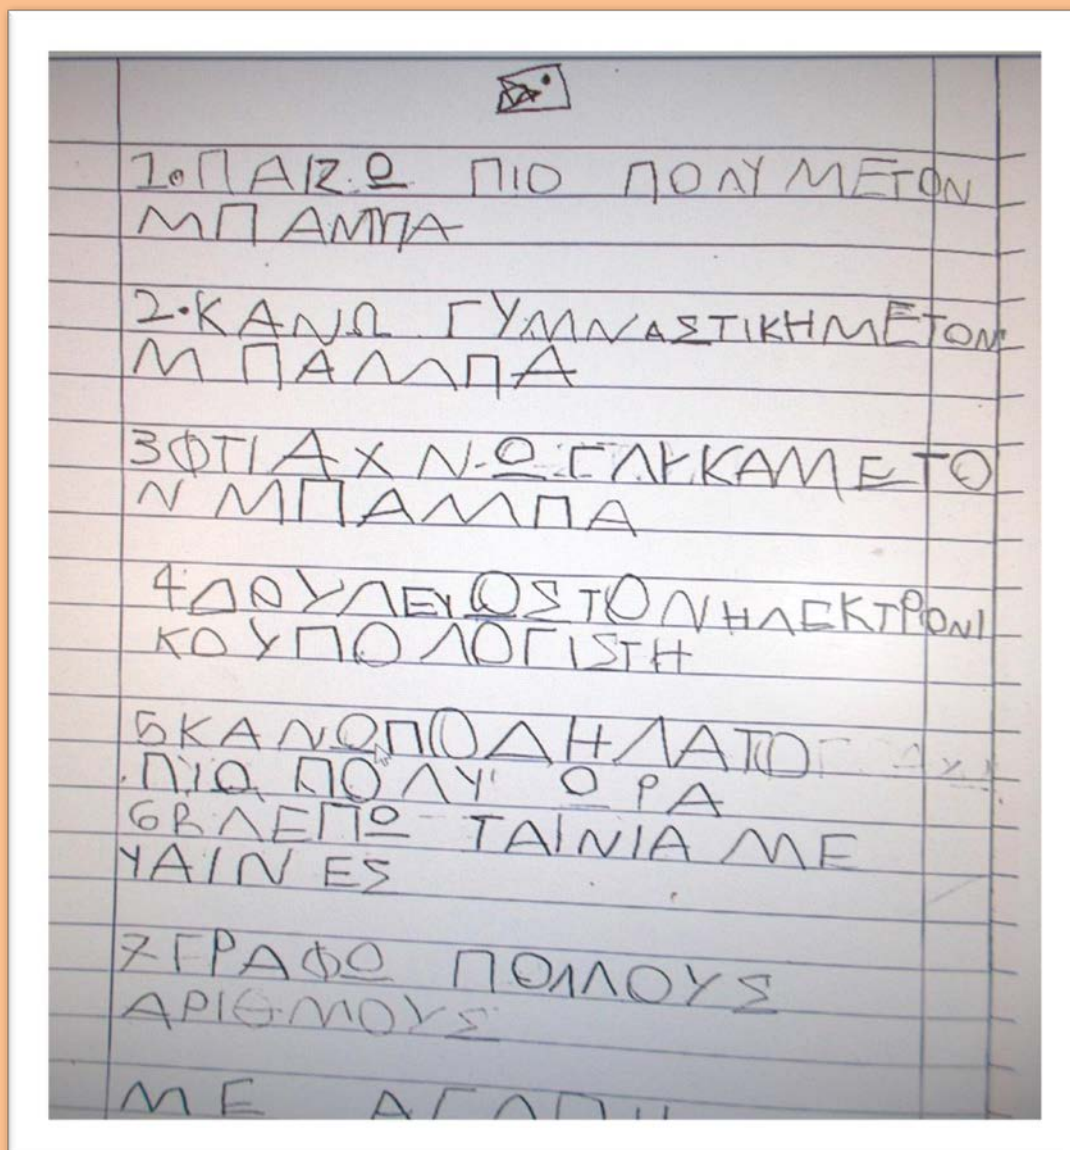 1. ΠΑΙΖΩ ΠΙΟ ΠΟΛΥ ΜΕ ΤΟΝ
ΜΠΑΜΠΑ
2. ΚΑΝΩ ΓΥΜΝΑΣΤΙΚΗ ΜΕ ΤΟΝ
ΜΠΑΜΠΑ
3 ΦΤΙΑΧΝΩ ΓΛΥΚΑ ΜΕ ΤΟ
Ν ΜΠΑΜΠΑ
4 ΔΟΥΛΕΥΩ ΣΤΟΝ ΗΛΕΚΤΡΟΝΙ
ΚΟ ΥΠΟΛΟΓΙΣΤΗ
5 ΚΑΝΩ ΠΟΔΗΛΑΤΟ
ΠΙΟ ΠΟΛΥ ΩΡΑ
6 ΒΛΕΠΩ ΤΑΙΝΙΑ ΜΕ
ΥΑΙΝΕΣ
7 ΓΡΑΦΩ ΠΟΛΛΟΥΣ
ΑΡΙΘΜΟΥΣ
ΜΕ ΑΓΑΠΗ